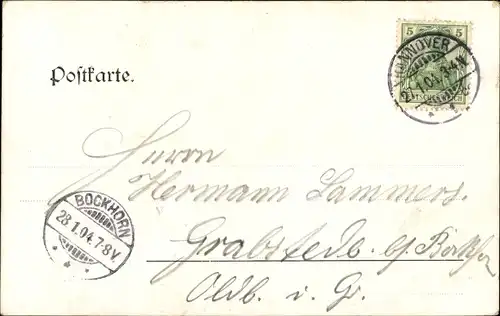 5 5
HANNOVER
27.1.04. 3-4N
Postkarte.
Herrn
Hermann Lammers.
BOCKHORN
28.1.04. 7-8V.
Grabstedt. b/ Bockhorn
Oldb. i. Gr.